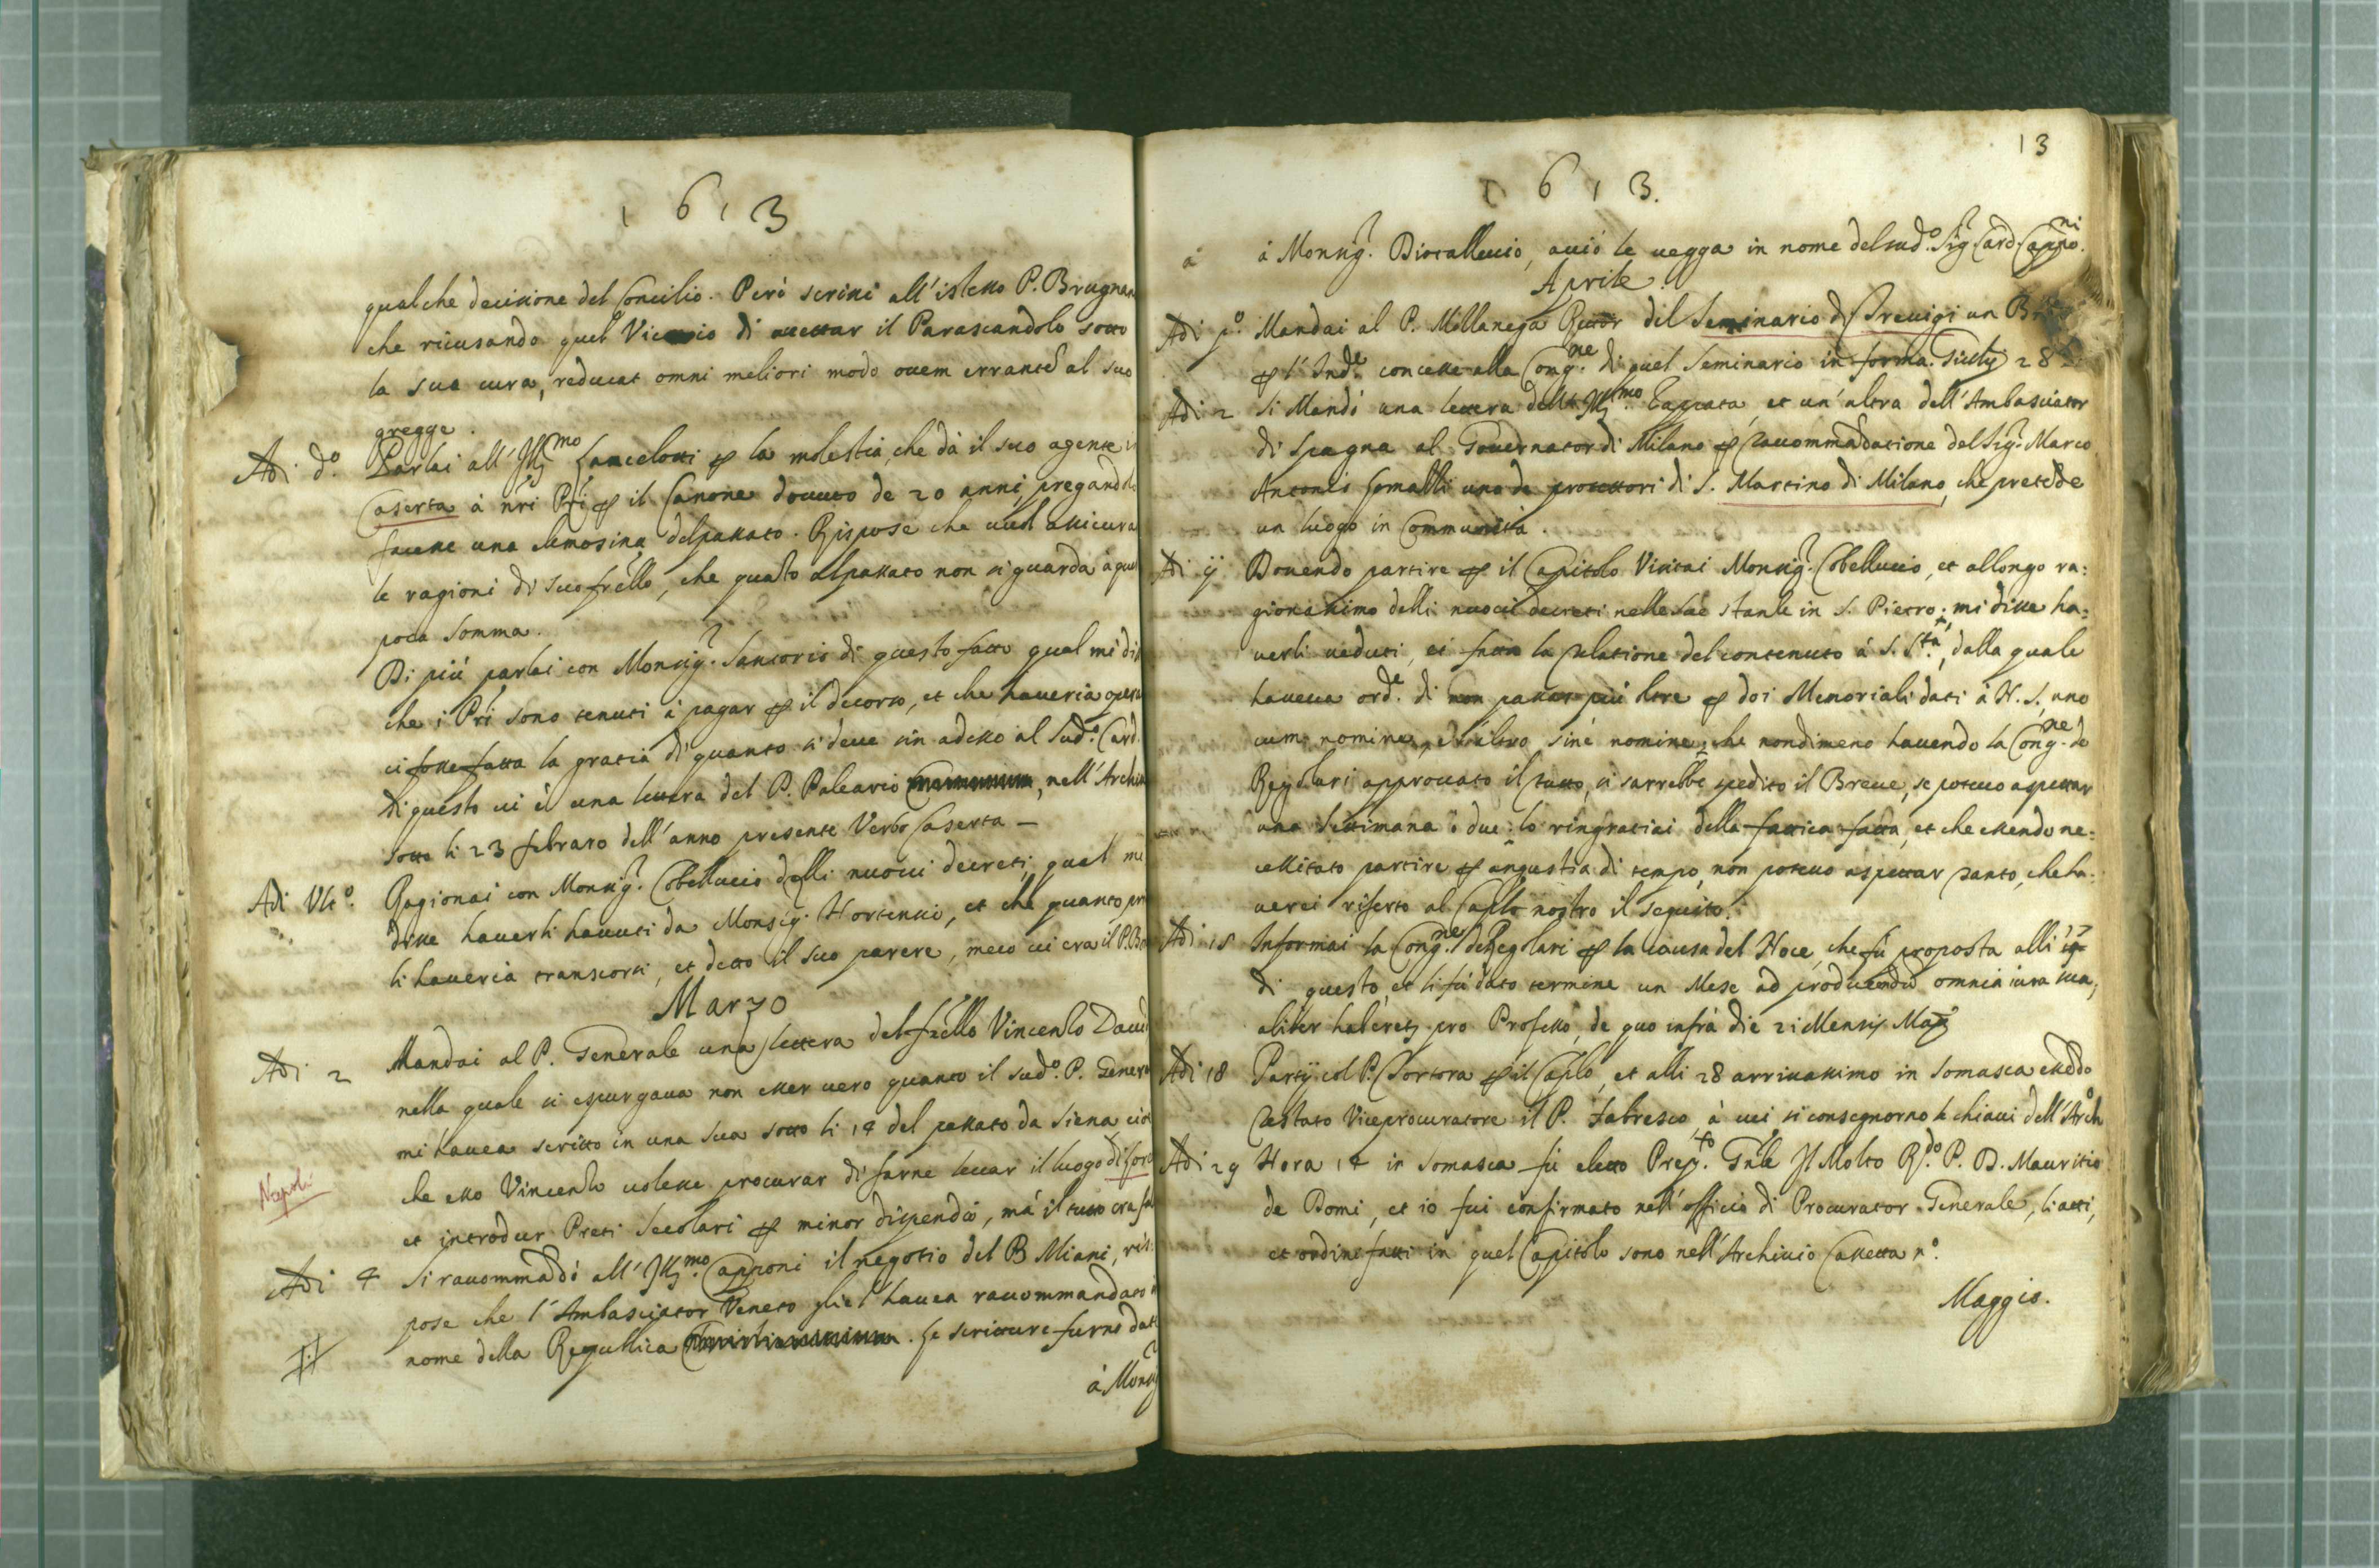 1613
qualche decissione del Concilio. Però scrissi all'istesso P. Brugnar
che ricusando quel Vicario di accettar il Parascandolo sotto
la sua cura, reducat omni meliori modo ovem errantem al suo
gregge.
Adi d.º Parlai all'Ill.mo Lancelotti per la molestia, che dà il suo agente in
Caserta à nri Pri per il Canone dovuto de 20 anni, pregandolo
facesse una elemosina del passato. Rispose che vuol assicurar
le ragioni di suo frello, che quãto al passato non si guarda à quel
poca somma.
Di più parlai con Monsig.r Santorio di questo fatto qual mi dis
che i Pri sono tenuti à pagar per il decorso, et che haveria oper
ci fosse fatta la gratia di quanto si deve sin adesso al Sud.º Card.
di questo vi è una lettera del P. Paleario, nell'Archi
sotto li 23 febraro dell'anno presente Verbo Caserta –
Adi Ult.º Ragionai con Monsig.r Cobelluccio delli nuovi decreti, qual mi
disse haverli havuti da Monsig.r Hortensio, et che quanto pri
li haveria transcorsi, et detto il suo parere, meco vi era il P. Bo
Marzo
Adi 2 Mandai al P. Generale una lettera del frello Vincenzo Davi
nella quale si espurgava non esser vero quanto il sud.º P. Gener
mi havea scritto in una sua sotto li 14 del passato da Siena ciò
che esso Vincenzo volesse procurar di farne levar il luogo di
Napoli
et introdur Preti Secolari per minor dispendio, mà il tutto era fa
Adi 4 Si raccommãdò all'Ill.mo Capponi il negotio del B. Miani, ris
pose che l'Ambasciator Veneto gliel'havea raccommandato in
nome della Republica. Le scritture furno dat
à Monsig
13
1613.
à à Monsig.r, acciò le vegga in nome del sud.º Sig.r Card. Capponi.
Aprile.
Adi p.º Mandai al P. Mellanega Rettor del Seminario di Trevigi un
per l'Ind.e concesse alla Cong.ne di quel Seminario in forma. Sotto 28
Adi 2 Si Mandò una lettera dell'Ill.mo Zappata, et un'altra dell'Ambasciator
di Spagna al Governator di Milano per raccommãdatione del Sig.r Marco
Antonio uno de protettori di S. Martino di Milano, che pretẽde
un luogo in Communità.
Adi Dovendo partire per il Capitolo Visitai Monsig.r Cobelluccio, et allongo ra:
gionassimo delli nuovi decreti nelle sue stanze in S. Pietro; mi disse ha:
verli veduti, et fatto la relatione del contenuto à S. S.tà, dalla quale
haveva ord.e di non passar più oltre per doi Memoriali dati à N. S., uno
cum nomine, et l'altro sine nomine, che nondimeno havendo la Cong.ne de
Regolari approvato il tutto, si sarrebbe spedito il Breve, se potevo aspettar
una Settimana ò due: lo ringratiai della fattica fatta, et che essendo ne:
cessitato partire per angustia di tempo, non potevo aspettar tanto, che ha:
verei riferto al Caplo nostro il seguito.
Adi 15 Informai la Cong.ne de Regolari per la causa del Noce, che fù proposta alli 17
di questo, et li fù dato termine un Mese ad producendũ omnia iura sua,
aliter haberetur pro Professo, de quo infrà die 21 Mensis Maij
Adi 18 Partij col P. Tortora per il Caplo, et alli 28 arrivassimo in Somasca essẽdo
restato Viceprocuratore il P. Fabresco, à cui si consegnorno le chiavi dell'Arch.º
Adi 29 Hora 14 in Somasca fù eletto Prep.to Gnle Il Molto R.do P. D. Mauritio
de Domi, et io fui confirmato nell'officio di Procurator Generale, li atti,
et ordini fatti in quel Capitolo sono nell'Archivio Cassetta n.º
Maggio.